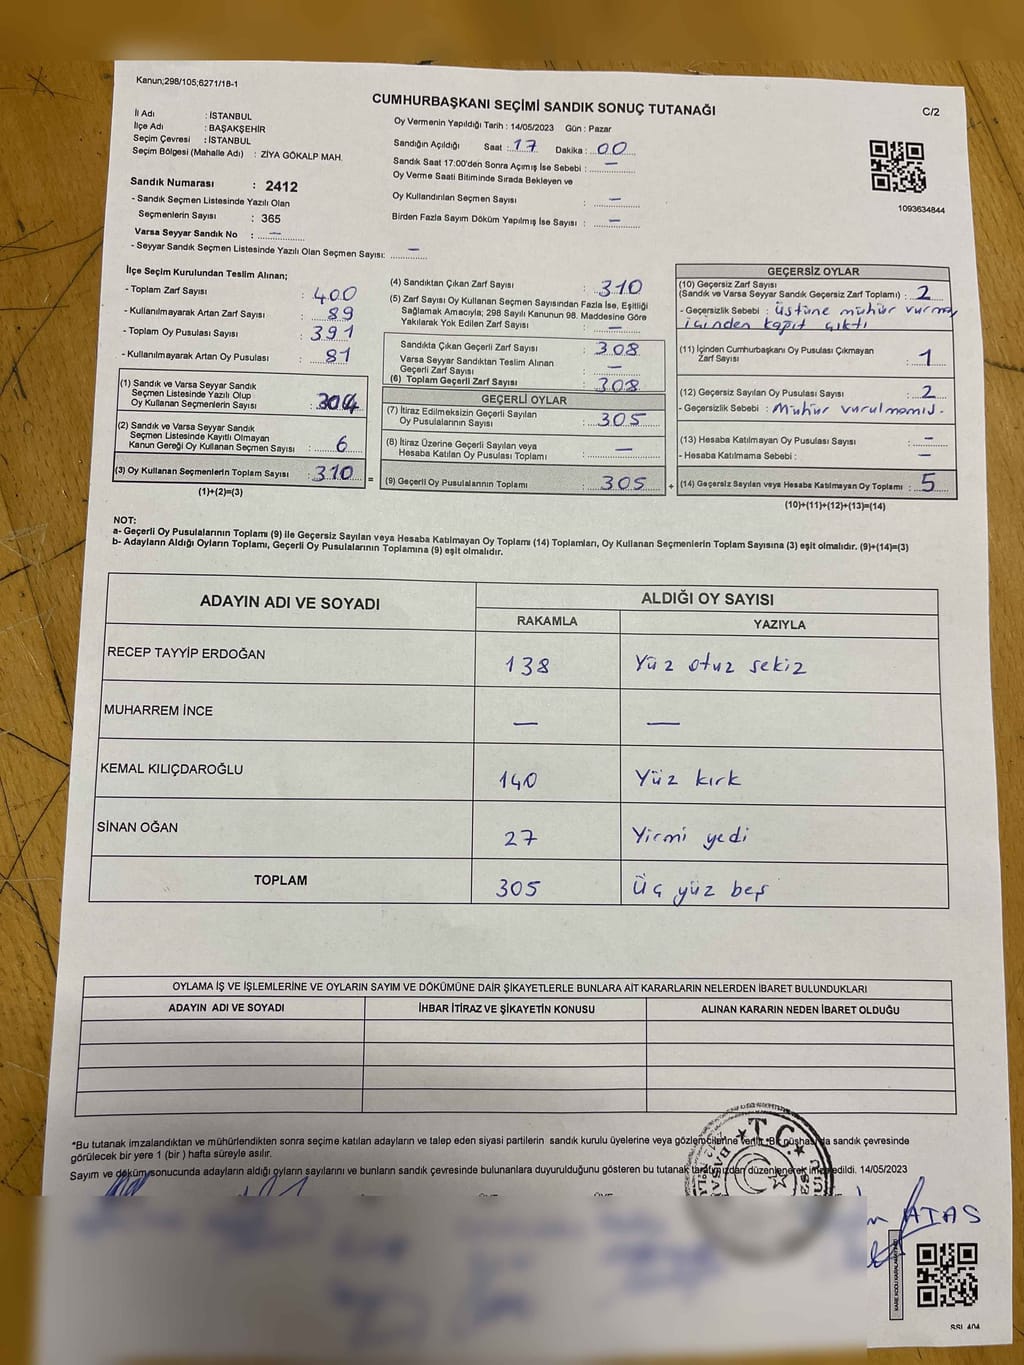 Kanun;298/105;6271/18-1
CUMHURBAŞKANI SEÇİMİ SANDIK SONUÇ TUTANAĞI
C/2
İl Adı : İSTANBUL
İlçe Adı : BAŞAKŞEHİR
Seçim Çevresi : İSTANBUL
Seçim Bölgesi (Mahalle Adı) : ZİYA GÖKALP MAH.
Sandık Numarası : 2412
- Sandık Seçmen Listesinde Yazılı Olan
Seçmenlerin Sayısı : 365
Varsa Seyyar Sandık No : —
- Seyyar Sandık Seçmen Listesinde Yazılı Olan Seçmen Sayısı: —
Oy Vermenin Yapıldığı Tarih : 14/05/2023 Gün : Pazar
Sandığın Açıldığı Saat : 17 Dakika : 00
Sandık Saat 17:00'den Sonra Açımış İse Sebebi : —
Oy Verme Saati Bitiminde Sırada Bekleyen ve
Oy Kullandırılan Seçmen Sayısı : —
Birden Fazla Sayım Döküm Yapılmış İse Sayısı : —
1093634844
İlçe Seçim Kurulundan Teslim Alınan;
- Toplam Zarf Sayısı : 400
- Kullanılmayarak Artan Zarf Sayısı : 89
- Toplam Oy Pusulası Sayısı : 391
- Kullanılmayarak Artan Oy Pusulası : 81
(1) Sandık ve Varsa Seyyar Sandık
Seçmen Listesinde Yazılı Olup
Oy Kullanan Seçmenlerin Sayısı : 304
(2) Sandık ve Varsa Seyyar Sandık
Seçmen Listesinde Kayıtlı Olmayan
Kanun Gereği Oy Kullanan Seçmen Sayısı : 6
(3) Oy Kullanan Seçmenlerin Toplam Sayısı : 310
(1)+(2)=(3)
(4) Sandıktan Çıkan Zarf Sayısı : 310
(5) Zarf Sayısı Oy Kullanan Seçmen Sayısından Fazla İse, Eşitliği
Sağlamak Amacıyla; 298 Sayılı Kanunun 98. Maddesine Göre
Yakılarak Yok Edilen Zarf Sayısı : —
Sandıkta Çıkan Geçerli Zarf Sayısı : 308
Varsa Seyyar Sandıktan Teslim Alınan
Geçerli Zarf Sayısı : —
(6) Toplam Geçerli Zarf Sayısı : 308
GEÇERLİ OYLAR
(7) İtiraz Edilmeksizin Geçerli Sayılan
Oy Pusulalarının Sayısı : 305
(8) İtiraz Üzerine Geçerli Sayılan veya
Hesaba Katılan Oy Pusulası Toplamı : —
= (9) Geçerli Oy Pusulalarının Toplamı : 305 +
GEÇERSİZ OYLAR
(10) Geçersiz Zarf Sayısı
(Sandık ve Varsa Seyyar Sandık Geçersiz Zarf Toplamı) : 2
- Geçersizlik Sebebi : üstüne mühür vurma,
içinden kağıt çıktı
(11) İçinden Cumhurbaşkanı Oy Pusulası Çıkmayan
Zarf Sayısı : 1
(12) Geçersiz Sayılan Oy Pusulası Sayısı : 2
- Geçersizlik Sebebi : Mühür vurulmamış.
(13) Hesaba Katılmayan Oy Pusulası Sayısı : —
- Hesaba Katılmama Sebebi : —
(14) Geçersiz Sayılan veya Hesaba Katılmayan Oy Toplamı : 5
(10)+(11)+(12)+(13)=(14)
NOT:
a- Geçerli Oy Pusulalarının Toplamı (9) ile Geçersiz Sayılan veya Hesaba Katılmayan Oy Toplamı (14) Toplamları, Oy Kullanan Seçmenlerin Toplam Sayısına (3) eşit olmalıdır. (9)+(14)=(3)
b- Adayların Aldığı Oyların Toplamı, Geçerli Oy Pusulalarının Toplamına (9) eşit olmalıdır.
ADAYIN ADI VE SOYADI ALDIĞI OY SAYISI
RAKAMLA YAZIYLA
RECEP TAYYİP ERDOĞAN 138 Yüz otuz sekiz
MUHARREM İNCE — —
KEMAL KILIÇDAROĞLU 140 Yüz kırk
SİNAN OĞAN 27 Yirmi yedi
TOPLAM 305 Üç yüz beş
OYLAMA İŞ VE İŞLEMLERİNE VE OYLARIN SAYIM VE DÖKÜMÜNE DAİR ŞİKAYETLERLE BUNLARA AİT KARARLARIN NELERDEN İBARET BULUNDUKLARI
ADAYIN ADI VE SOYADI İHBAR İTİRAZ VE ŞİKAYETİN KONUSU ALINAN KARARIN NEDEN İBARET OLDUĞU
*Bu tutanak imzalandıktan ve mühürlendikten sonra seçime katılan adayların ve talep eden siyasi partilerin sandık kurulu üyelerine veya gözlemcilerine verilir. *Bir nüshası da sandık çevresinde
görülecek bir yere 1 (bir) hafta süreyle asılır.
Sayım ve döküm sonucunda adayların aldığı oyların sayılarını ve bunların sandık çevresinde bulunanlara duyurulduğunu gösteren bu tutanak tarafımızdan düzenlenerek imzaedildi. 14/05/2023
T.C.
ATAS